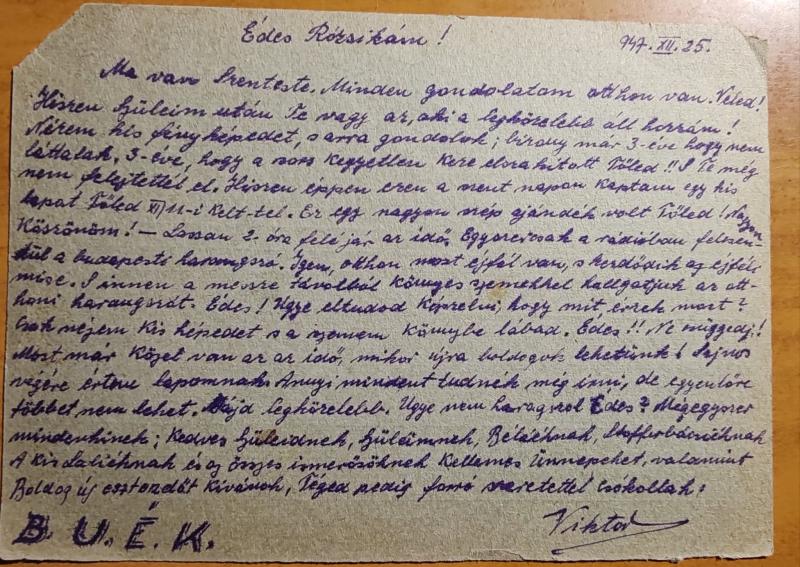 Édes Rózsikám! 947.XII.25.
Ma van Szenteste. Minden gondolatom otthon van Véled!
Hiszen Szüleim után Te vagy az, aki a legközelebb áll hozzám!
Nézem kis fényképedet, s arra gondolok; bizony már 3-éve hogy nem
láttalak. 3-éve, hogy a sors kegyetlen keze elszakított Tőled!! S Te még
nem felejtettél el. Hiszen éppen ezen a szent napon kaptam egy kis
lapot Tőled XI/11-i kelt-tel. Ez egy nagyon szép ajándék volt Tőled! Nagyon
Köszönöm! – Lassan 2-óra felé jár az idő, Egyszercsak a rádióban felcsen-
dül a budapesti harangszó. Igen, otthon most éjfél van, s kezdődik az éjféli
mise. S innen a messze távolból könnyes szemekkel hallgatjuk az ott-
honi harangszót. Édes! Ugye eltudod képzelni, hogy mit érzek most?
Csak nézem kis képedet s a szemem könnybe lábad. Édes!! Ne
Most már közel van az az idő, mikor újra boldogok lehetünk! Sajnos
végére értem lapomnak. Annyi mindent tudnék még írni, de egyenlőre
többet nem lehet. Majd legközelebb. Ugye nem haragszol Édes? Mégegyszer
mindenkinek; Kedves Szüleidnek, Szüleimnek, Béláéknak,
A kis és az összes ismerősöknek Kellemes Ünnepeket, valamint
Boldog új esztendőt kívánok, Téged pedig forró szeretettel csókollak:
B. U. É. K. Viktor